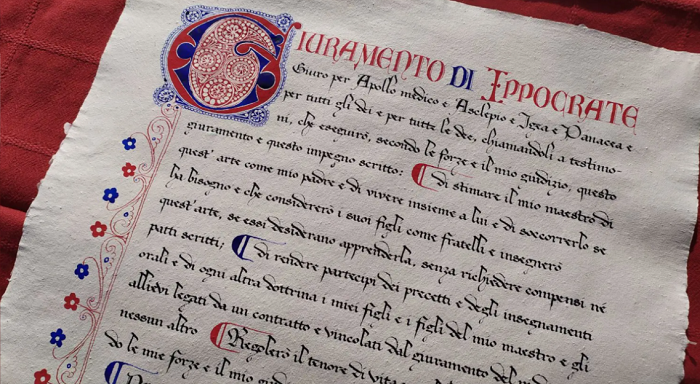 GIURAMENTO DI IPPOCRATE
Giuro per Apollo medico e Asclepio e Igea e Panacea e
per tutti gli dei e per tutte le dee, chiamandoli a testimo-
ni, che eseguirò, secondo le forze e il mio giudizio, questo
giuramento e questo impegno scritto: di stimare il mio maestro di
quest' arte come mio padre e di vivere insieme a lui e di soccorrerlo se
ha bisogno e che considererò i suoi figli come fratelli e insegnerò
quest'arte, se essi desiderano apprenderla, senza richiedere compensi né
patti scritti; di rendere partecipi dei precetti e degli insegnamenti
orali e di ogni altra dottrina i miei figli e i figli del mio maestro e gli
allievi legati da un contratto e vincolati dal giuramento del
nessun altro Regolerò il tenore di vita
do le mie forze e il mio